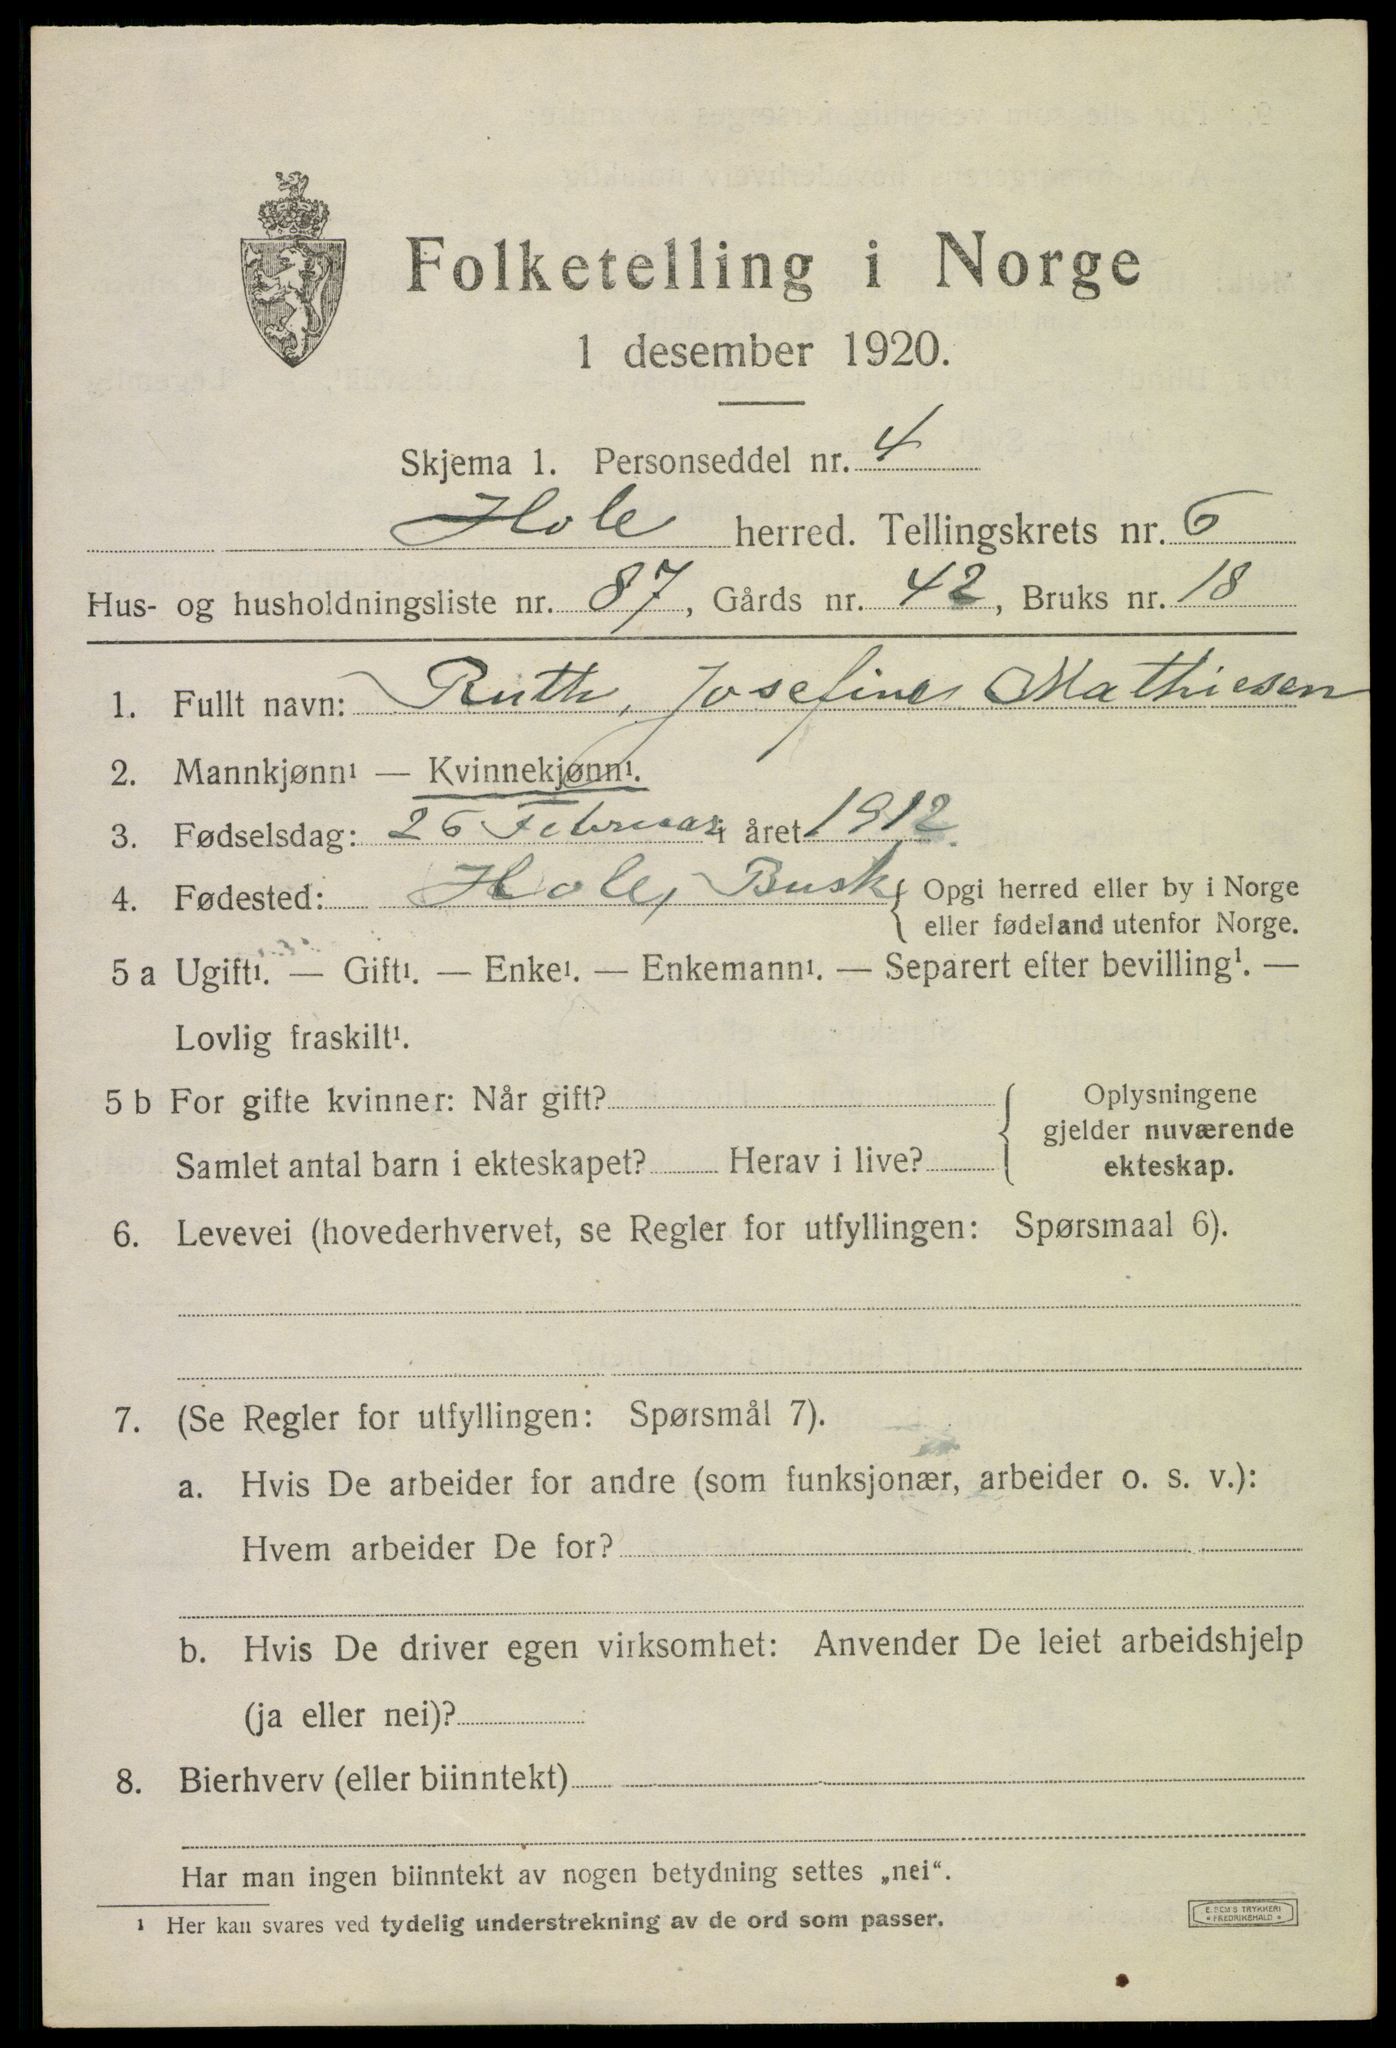 Folketelling i Norge
1 desember 1920.
Skjema 1. Personseddel nr. 4
Hole herred. Tellingskrets nr. 6
Hus- og husholdningsliste nr. 87, Gårds nr. 42, Bruks nr. 18
1. Fullt navn: Ruth, Josefine Mathiesen
2. Mannkjønn¹ — Kvinnekjønn¹.
3. Fødselsdag: 26 Februar i året 1912.
4. Fødested: Hole, Busk { Opgi herred eller by i Norge
eller fødeland utenfor Norge.
5 a Ugift¹. — Gift¹. — Enke¹. — Enkemann¹. — Separert efter bevilling¹. —
Lovlig fraskilt¹.
5 b For gifte kvinner: Når gift? { Oplysningene
gjelder nuværende
Samlet antal barn i ekteskapet? Herav i live? ekteskap.
6. Levevei (hovederhvervet, se Regler for utfyllingen: Spørsmaal 6).
7. (Se Regler for utfyllingen: Spørsmål 7).
a. Hvis De arbeider for andre (som funksjonær, arbeider o. s. v.):
Hvem arbeider De for?
b. Hvis De driver egen virksomhet: Anvender De leiet arbeidshjelp
(ja eller nei)?
8. Bierhverv (eller biinntekt)
Har man ingen biinntekt av nogen betydning settes „nei“.
¹ Her kan svares ved tydelig understrekning av de ord som passer.
E. SEM'S TRYKKERI
• FREDRIKSHALD •